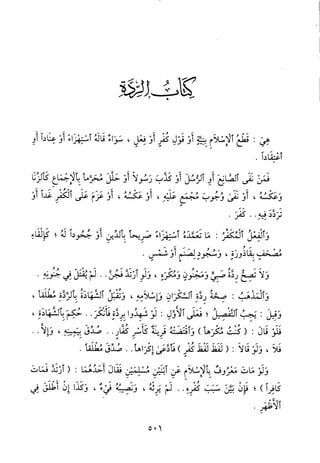 كِتَابُ الرِّدَّةِ
هِيَ : قَطْعُ ٱلْإِسْلَامِ بِنِيَّةٍ أَوْ قَوْلِ كُفْرٍ أَوْ فِعْلٍ ، سَوَاءٌ قَالَهُ ٱسْتِهْزَاءً أَوْ عِنَاداً أَوِ
ٱعْتِقَاداً .
فَمَنْ نَفَى ٱلصَّانِعَ أَوِ ٱلرُّسُلَ أَوْ كَذَّبَ رَسُولاً أَوْ حَلَّلَ مُحَرَّماً بِٱلْإِجْمَاعِ كَٱلزِّنَا
وَعَكْسَهُ ، أَوْ نَفَى وُجُوبَ مُجْمَعٍ عَلَيْهِ ، أَوْ عَكْسَهُ ، أَوْ عَزَمَ عَلَى ٱلْكُفْرِ غَداً أَوْ
تَرَدَّدَ فِيهِ.. كَفَرَ .
وَٱلْفِعْلُ ٱلْمُكَفِّرُ : مَا تَعَمَّدَهُ ٱسْتِهْزَاءً صَرِيحاً بِٱلدِّينِ أَوْ جُحُوداً لَهُ ؛ كَإِلْقَاءِ
مُصْحَفٍ بِقَاذُورَةٍ ، وَسُجُودٍ لِصَنَمٍ أَوْ شَمْسٍ .
وَلَا تَصِحُّ رِدَّةُ صَبِيٍّ وَمَجْنُونٍ وَمُكْرَهٍ ، وَلَوِ ٱرْتَدَّ فَجُنَّ.. لَمْ يُقْتَلْ فِي جُنُونِهِ .
وَٱلْمَذْهَبُ : صِحَّةُ رِدَّةِ ٱلسَّكْرَانِ وَإِسْلَامِهِ ، وَتُقْبَلُ ٱلشَّهَادَةُ بِٱلرِّدَّةِ مُطْلَقاً ،
وَقِيلَ : يَجِبُ ٱلتَّفْصِيلُ ، فَعَلَى ٱلْأَوَّلِ : لَوْ شَهِدُوا بِرِدَّةٍ فَأَنْكَرَ.. حُكِمَ بِٱلشَّهَادَةِ ،
فَلَوْ قَالَ : ( كُنْتُ مُكْرَهاً ) وَٱقْتَضَتْهُ قَرِينَةٌ كَأَسْرِ كُفَّارٍ.. صُدِّقَ بِيَمِينِهِ ، وَإِلَّا..
فَلَا ، وَلَوْ قَالَا : ( لَفَظَ لَفْظَ كُفْرٍ ) فَٱدَّعَى إِكْرَاهاً.. صُدِّقَ مُطْلَقاً .
وَلَوْ مَاتَ مَعْرُوفٌ بِٱلْإِسْلَامِ عَنِ ٱبْنَيْنِ مُسْلِمَيْنِ فَقَالَ أَحَدُهُمَا : ( ٱرْتَدَّ فَمَاتَ
كَافِراً ) ؛ فَإِنْ بَيَّنَ سَبَبَ كُفْرِهِ.. لَمْ يَرِثْهُ ، وَنَصِيبُهُ فَيْءٌ ، وَكَذَا إِنْ أَطْلَقَ فِي
ٱلْأَظْهَرِ .
٥٠١